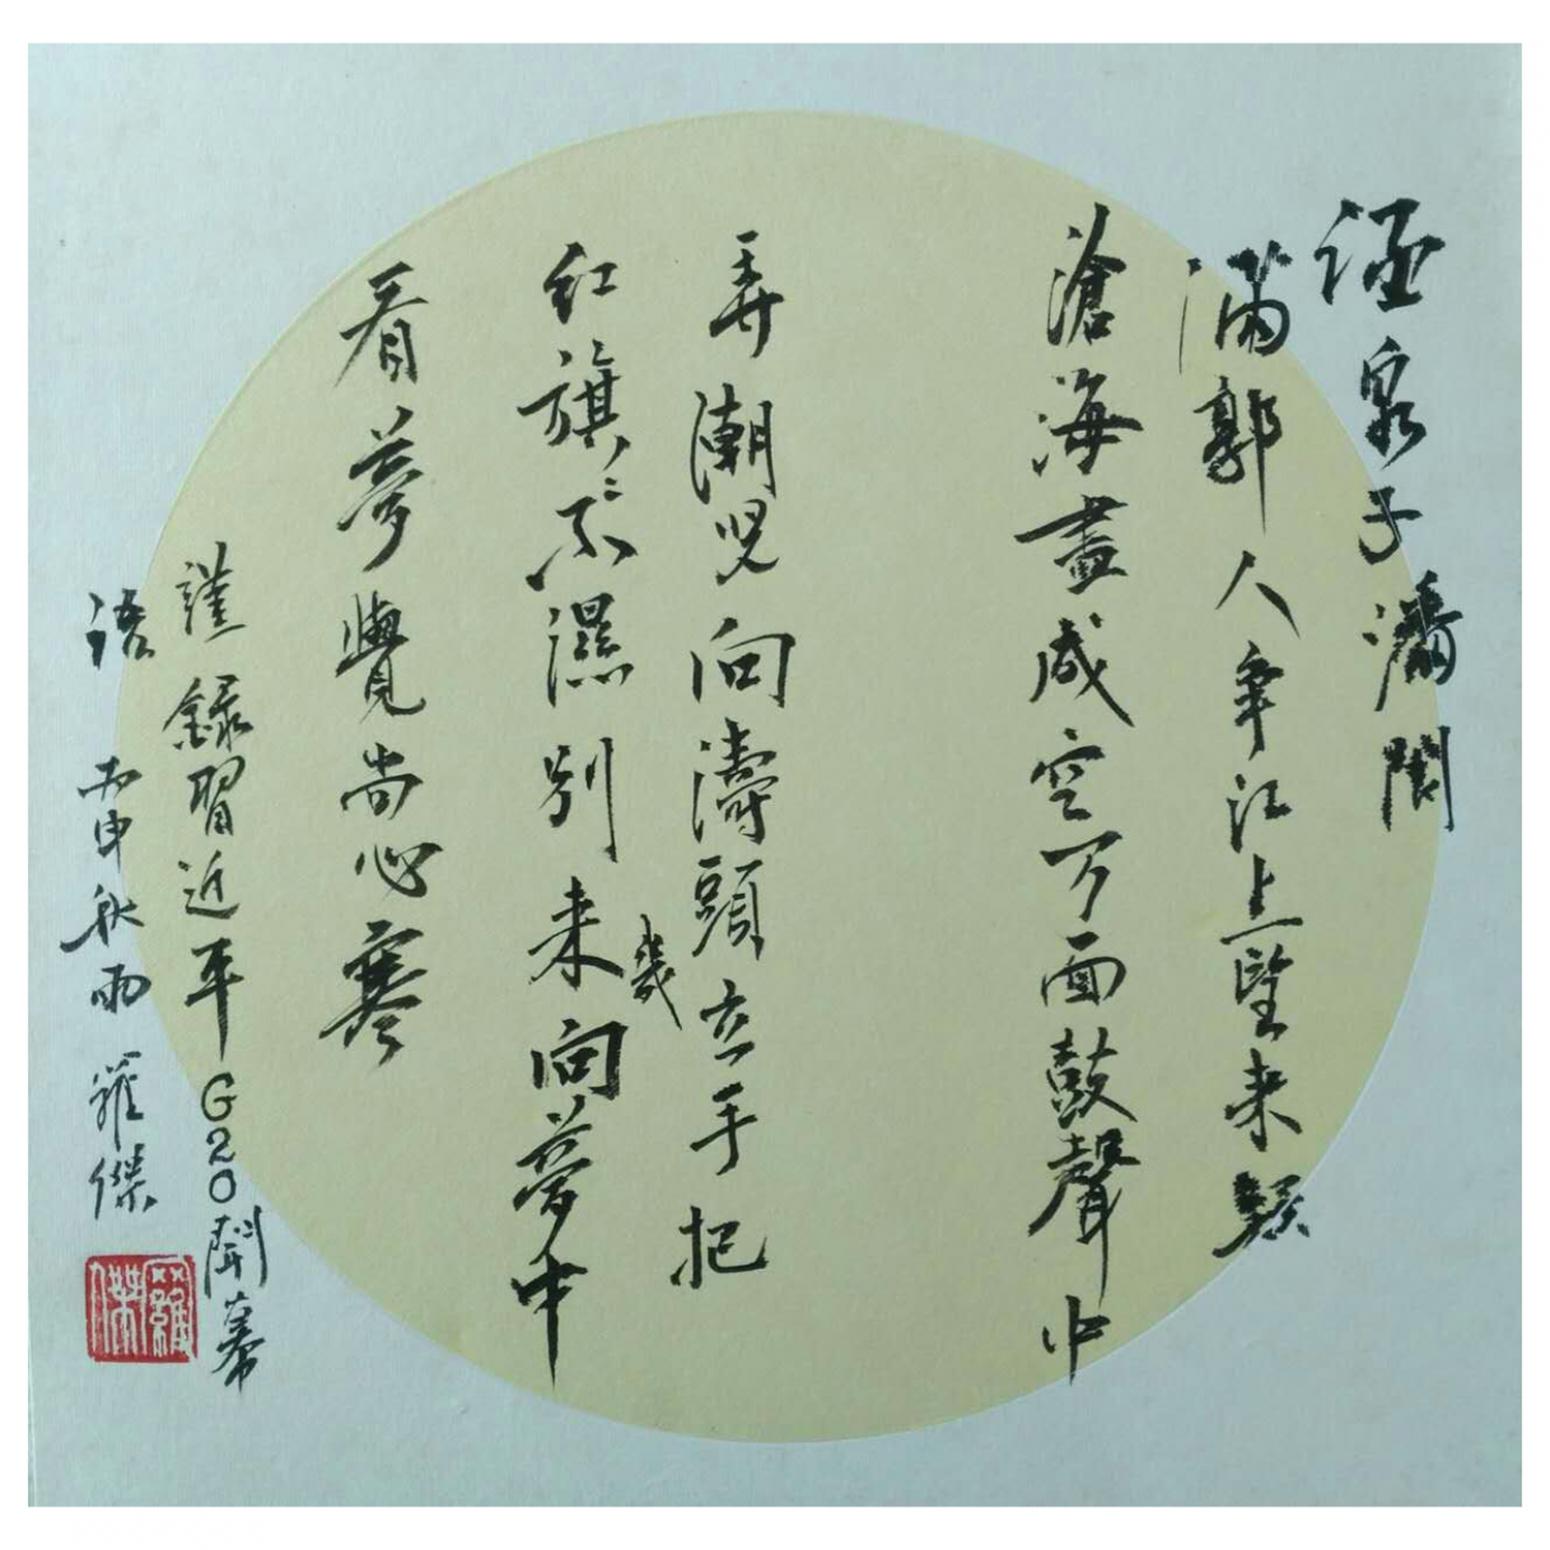 泉子潘閬
滿郭人争江上望来疑
滄海盡成空万面鼓聲中
弄潮児向濤頭立手把
红旗〻不濕别来幾向夢中
看夢覺尚心寒
謹録習近平G20開幕
語 丙申秋雨 羅傑
羅傑